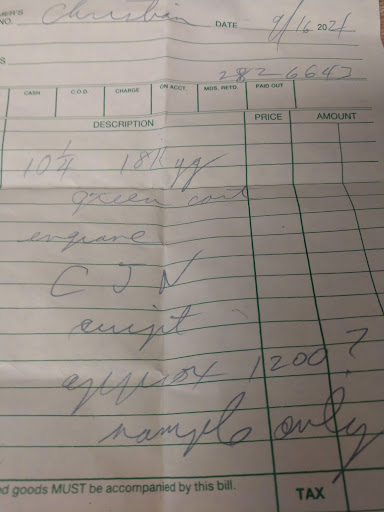 MER'S
NO. Christian DATE 9/16 2021
S
282 6643
CASH C.O.D. CHARGE ON ACCT. MDS. RETD. PAID OUT
DESCRIPTION PRICE AMOUNT
10 1/4 18K yg
green cart
engrave
C J N
script
approx 1200?
sample only
d goods MUST be accompanied by this bill. TAX